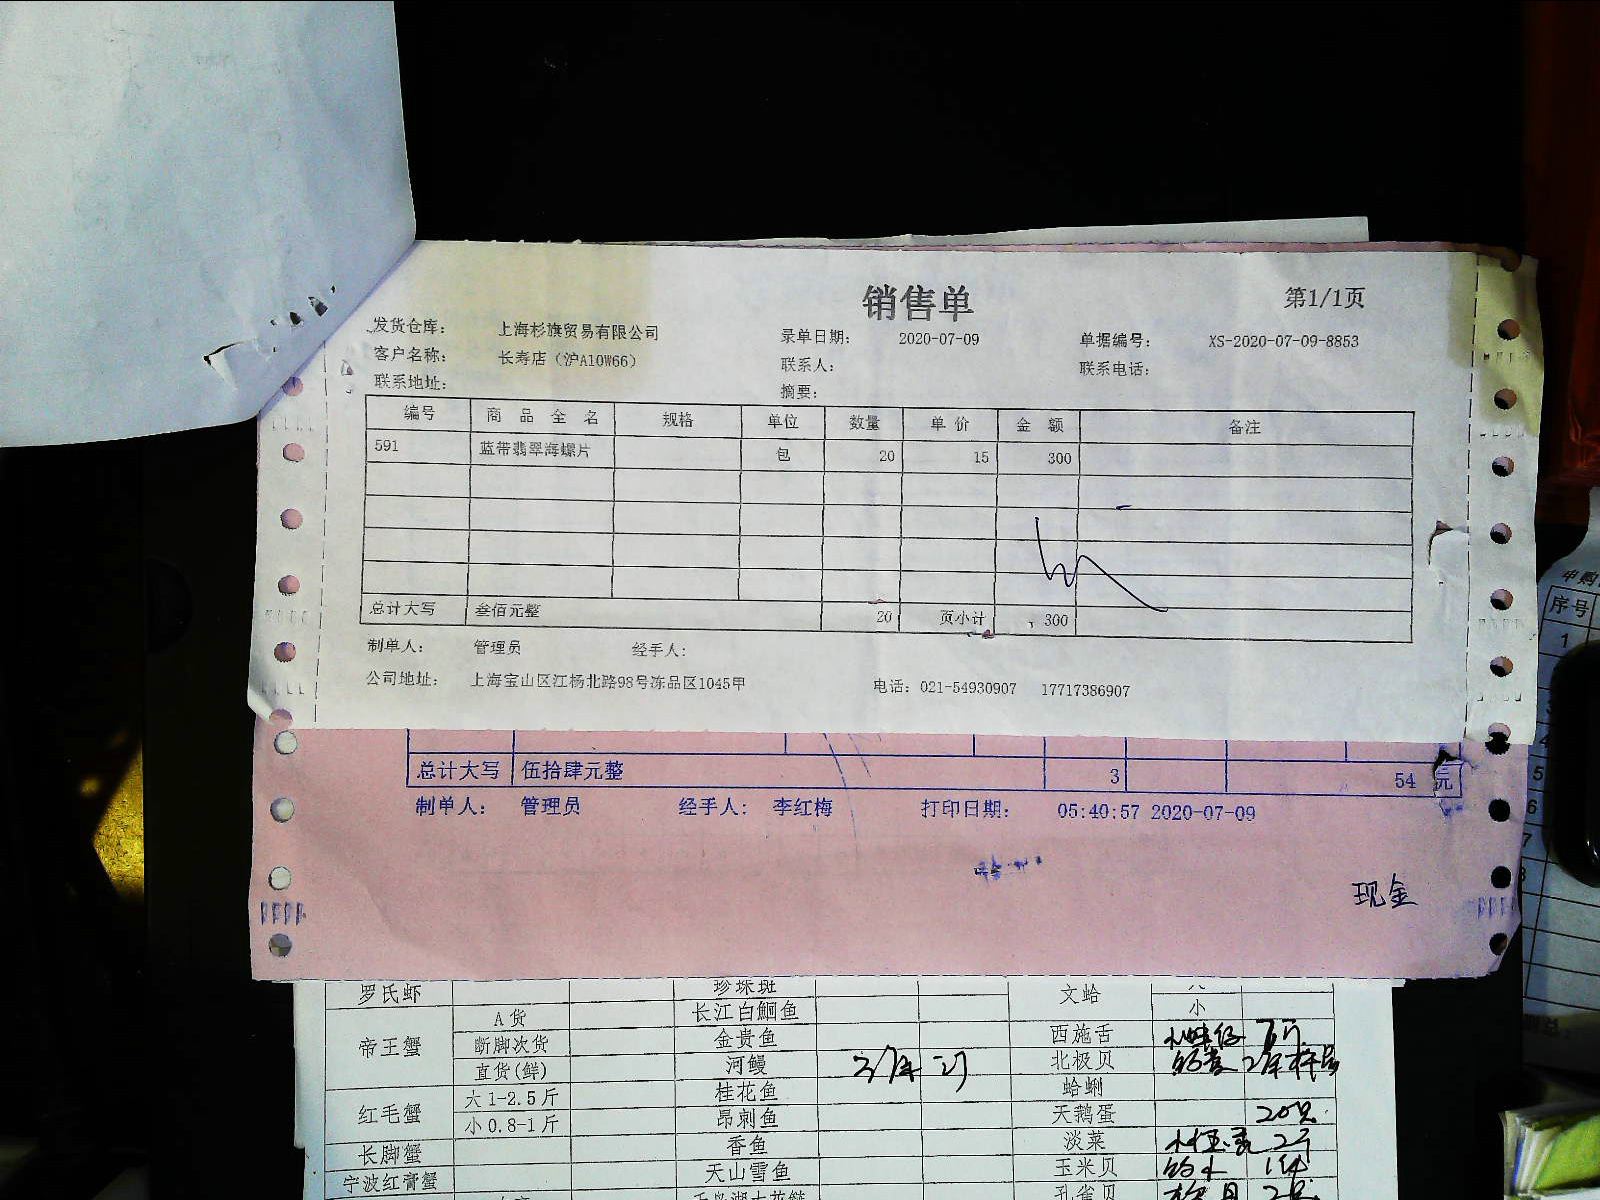 销售单
第1/1页
发货仓库: 上海杉旗贸易有限公司 录单日期: 2020-07-09 单据编号: XS-2020-07-09-8853
客户名称: 长寿店（沪A10W66） 联系人: 联系电话:
联系地址: 摘要:
编号 商品全名 规格 单位 数量 单价 金额 备注
591 蓝带翡翠海螺片 包 20 15 300
总计大写 叁佰元整 20 页小计 300
制单人: 管理员 经手人:
公司地址: 上海宝山区江杨北路98号冻品区1045甲 电话: 021-54930907 17717386907
总计大写 伍拾肆元整 3 54 元
制单人: 管理员 经手人: 李红梅 打印日期: 05:40:57 2020-07-09
现金
罗氏虾 珍珠斑 文蛤
长江白鮰鱼 小
帝王蟹 A货 金贵鱼 西施舌
断脚次货 河鳗 北极贝
直货(鲜) 桂花鱼 蛤蜊
红毛蟹 大1-2.5斤 昂刺鱼 天鹅蛋 20只
小0.8-1斤 香鱼 淡菜
长脚蟹 天山雪鱼 玉米贝
宁波红膏蟹 孔雀贝
申购
序号
1
5
6
7